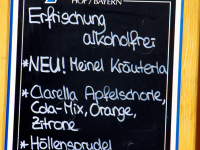 HOF / BAYERN
Erfrischung
alkoholfrei
*NEU! Meinel Kräuterla
*Clarella Apfelschorle,
Cola-Mix, Orange,
Zitrone
*Höllensprudel